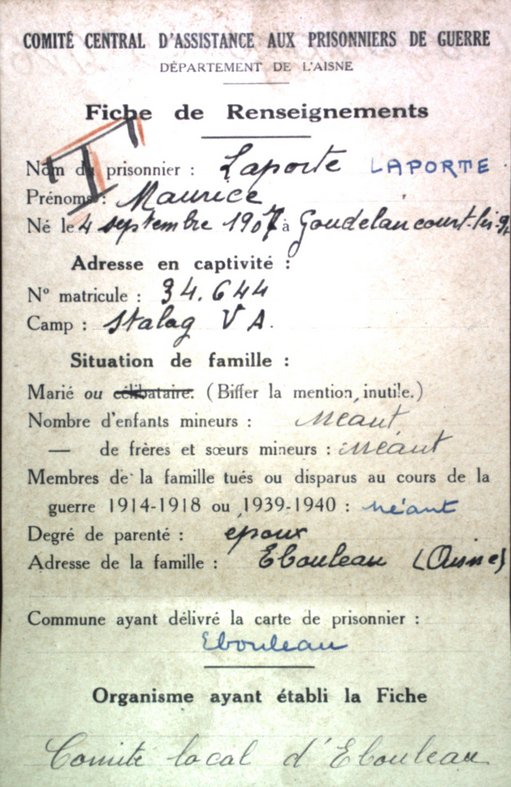 COMITÉ CENTRAL D'ASSISTANCE AUX PRISONNIERS DE GUERRE
DÉPARTEMENT DE L'AISNE
Fiche de Renseignements
Nom du prisonnier : Laporte LAPORTE
Prénoms : Maurice
Né le 4 septembre 1907 à Goudelancourt-les-
Adresse en captivité :
N° matricule : 34.644
Camp : Stalag V A.
Situation de famille :
Marié ou célibataire. (Biffer la mention inutile.)
Nombre d'enfants mineurs : Néant
— de frères et sœurs mineurs : Néant
Membres de la famille tués ou disparus au cours de la
guerre 1914-1918 ou 1939-1940 : néant
Degré de parenté : époux
Adresse de la famille : Ebouleau (Aisne)
Commune ayant délivré la carte de prisonnier :
Ebouleau
Organisme ayant établi la Fiche
Comité local d'Ebouleau